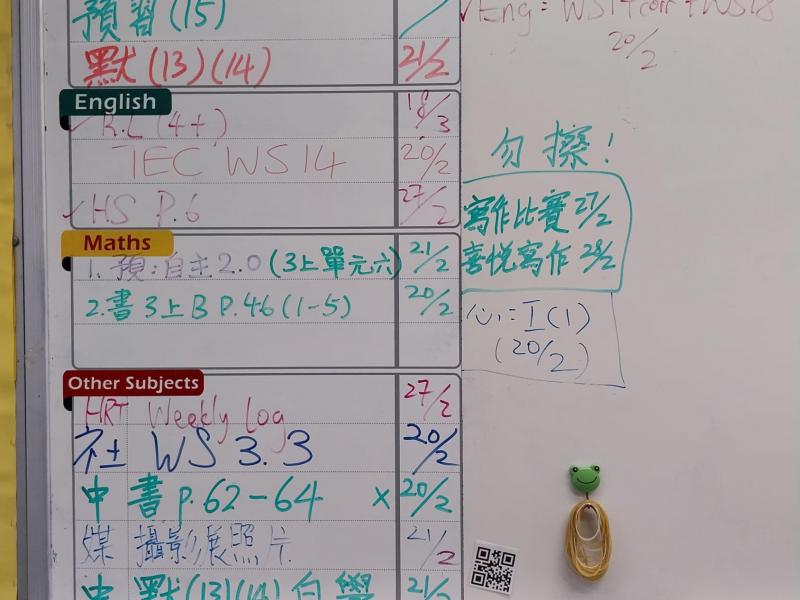 預習(15)
默(13)(14) 21/2
English
✓ R.L (4+) 18/3
TEC WS14 20/2
✓ HS P.6 27/2
Maths
1. 預:自主2.0(3上單元六) 21/2
2.書3上B P.46(1-5) 20/2
Other Subjects
HRT Weekly Log 27/2
社 WS 3.3 20/2
中 書 p.62-64 × 20/2
媒 攝影展照片 21/2
中 默(13)(14)自學 21/2
✓ Eng = WS14 corr + WS18
20/2
勿擦!
寫作比賽 27/2
喜悅寫作 28/2
I(1)
(20/2)